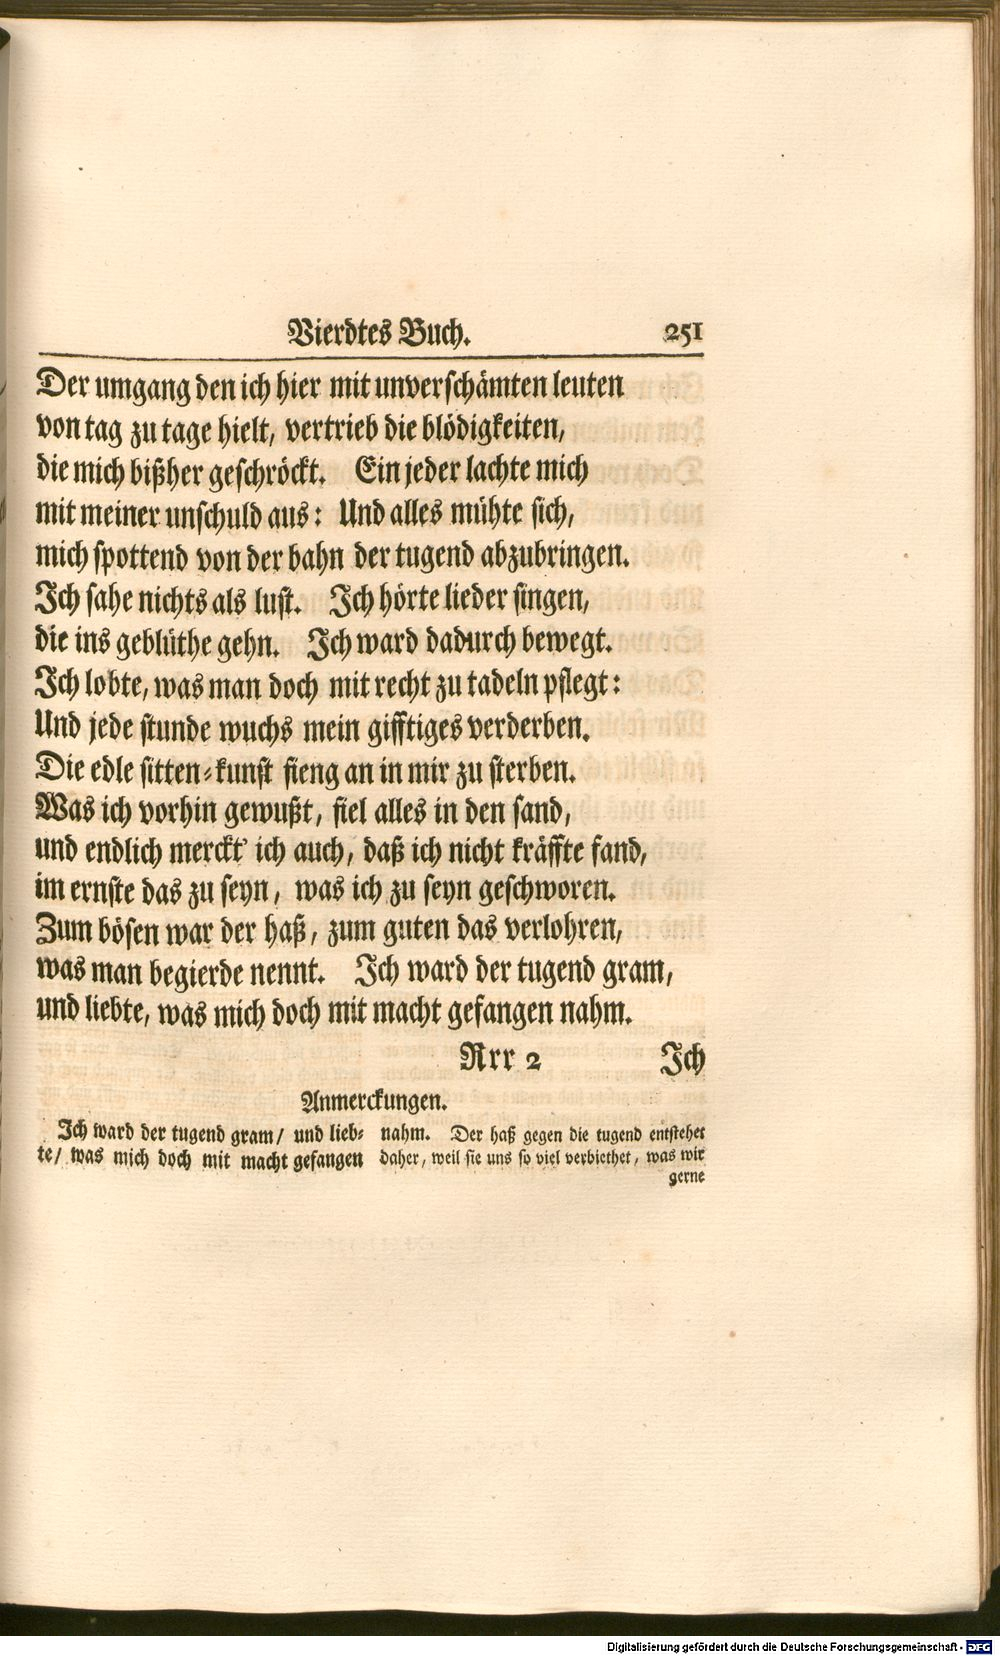 Vierdtes Buch. 251
Der umgang den ich hier mit unverschämten leuten
von tag zu tage hielt, vertrieb die blödigkeiten,
die mich bißher geschröckt. Ein jeder lachte mich
mit meiner unschuld aus: Und alles mühte sich,
mich spottend von der bahn der tugend abzubringen.
Ich sahe nichts als lust. Ich hörte lieder singen,
die ins geblüthe gehn. Ich ward dadurch bewegt.
Ich lobte, was man doch mit recht zu tadeln pflegt:
Und jede stunde wuchs mein gifftiges verderben.
Die edle sitten-kunst fieng an in mir zu sterben.
Was ich vorhin gewußt, fiel alles in den sand,
und endlich merckt' ich auch, daß ich nicht kräffte fand,
im ernste das zu seyn, was ich zu seyn geschworen.
Zum bösen war der haß, zum guten das verlohren,
was man begierde nennt. Ich ward der tugend gram,
und liebte, was mich doch mit macht gefangen nahm.
Rrr 2 Ich
Anmerckungen.
Ich ward der tugend gram/ und lieb-
te/ was mich doch mit macht gefangen
nahm. Der haß gegen die tugend entstehet
daher, weil sie uns so viel verbiethet, was wir
gerne
Digitalisierung gefördert durch die Deutsche Forschungsgemeinschaft - DFG